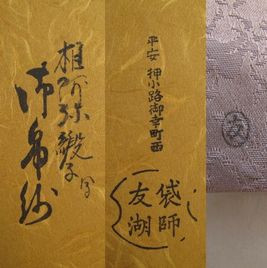 相阿弥緞子写
御帛紗
平安 押小路御幸町西
袋師
友湖
友